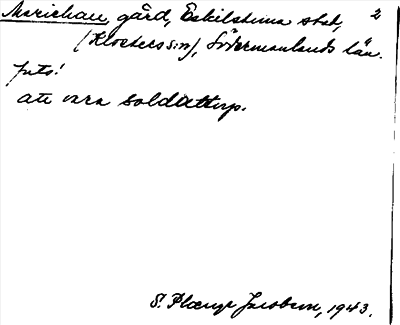 Mariehau gård, Eskilstuna stad, 2
(Klosters sn), Södermanlands län.
Juts!
att vara soldattorp.
S. Jacobson, 1943.